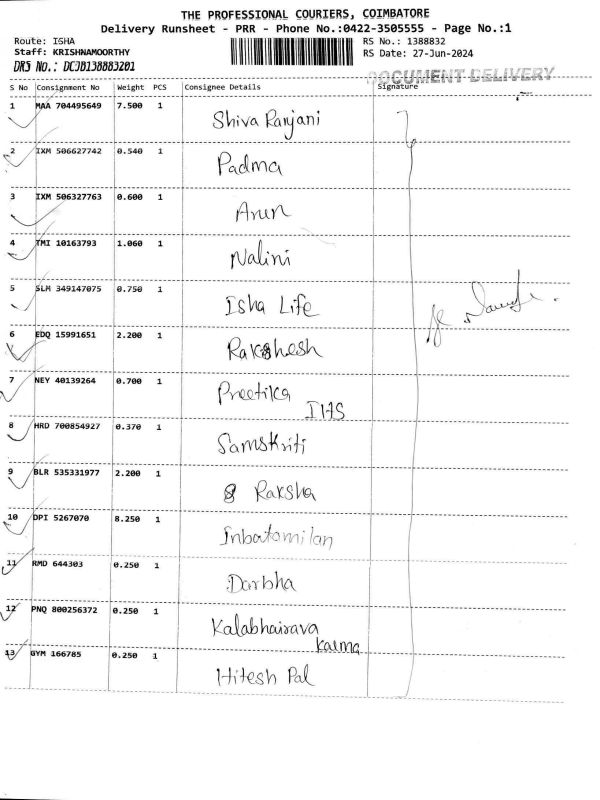 THE PROFESSIONAL COURIERS, COIMBATORE
Delivery Runsheet - PRR - Phone No.:0422-3505555 - Page No.:1
Route: ISHA
Staff: KRISHNAMOORTHY
DRS NO.: DCJB138883201
RS No.: 1388832
RS Date: 27-Jun-2024
DOCUMENT DELIVERY
S No Consignment No Weight PCS Consignee Details Signature
1 MAA 704495649 7.500 1 Shiva Ranjani
2 IXM 506627742 0.540 1 Padma
3 IXM 506327763 0.600 1 Arun
4 TMI 10163793 1.060 1 Nalini
5 SLM 349147075 0.750 1 Isha Life
6 EDQ 15991651 2.200 1 Rakshesh
7 NEY 40139264 0.700 1 Preetika
IHS
8 HRD 700854927 0.370 1 Samskriti
9 BLR 535331977 2.200 1 Raksha
10 DPI 5267070 8.250 1 Inbatamilan
11 RMD 644303 0.250 1 Darbha
12 PNQ 800256372 0.250 1 Kalabhairava
Karma
13 GYM 166785 0.250 1 Hitesh Pal